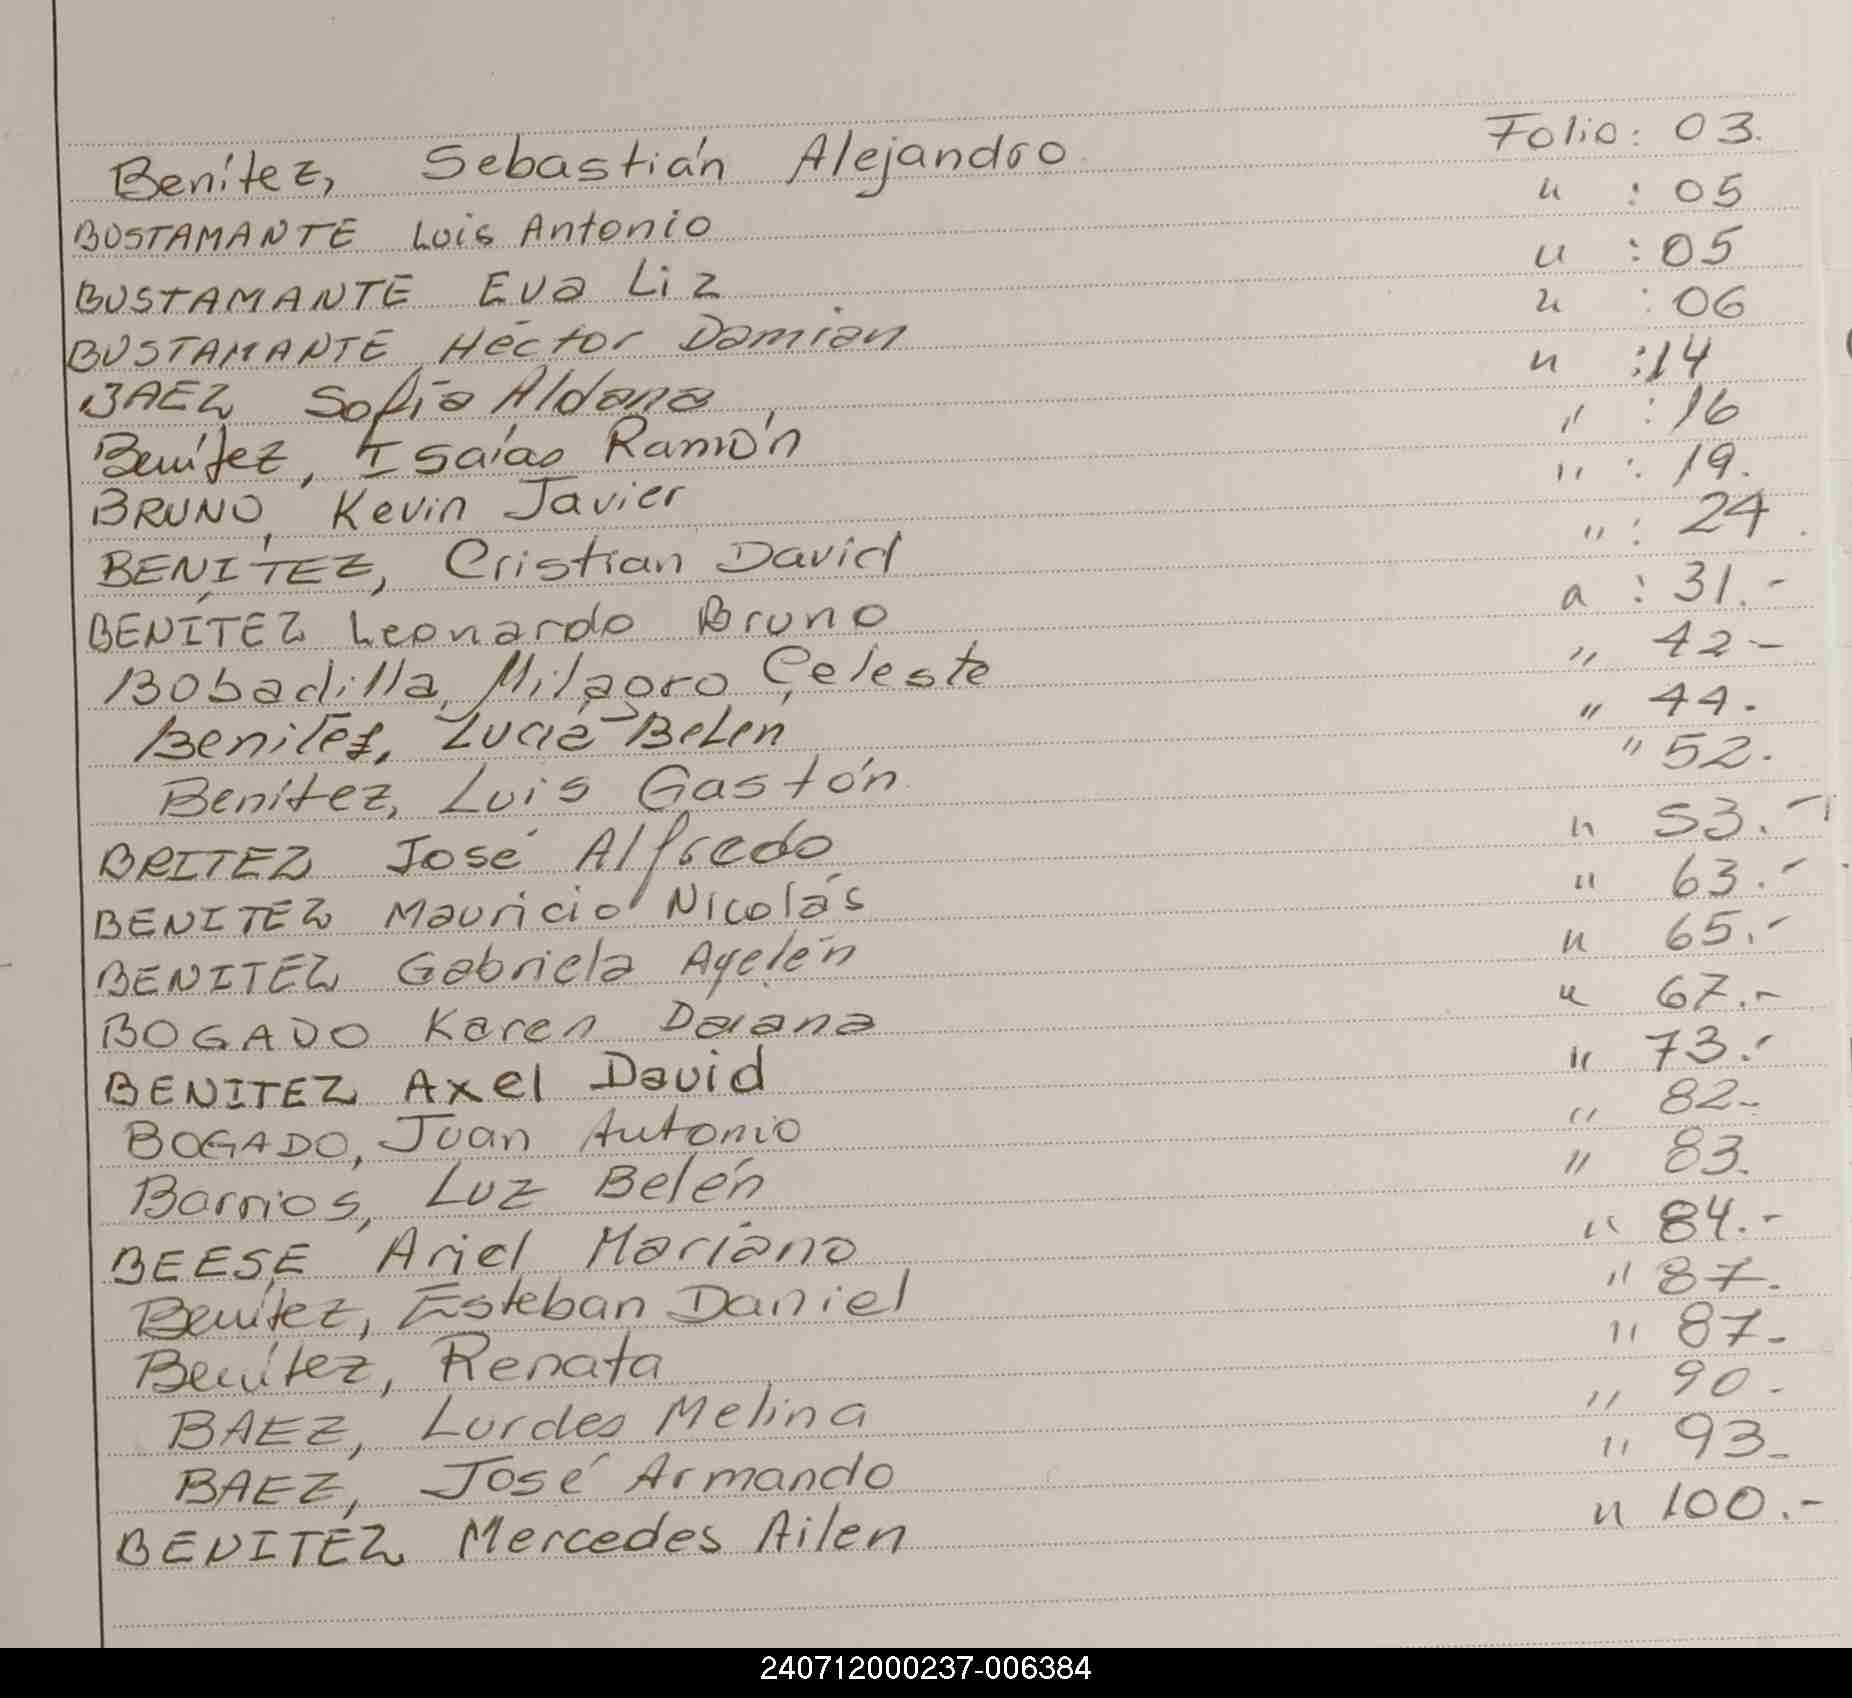 Benítez, Sebastián Alejandro Folio: 03.
BUSTAMANTE Luis Antonio " : 05
BUSTAMANTE Eva Liz " : 05
BUSTAMANTE Héctor Damian " : 06
BAEZ Sofía Aldana " : 14
Benítez, Isaías Ramón " : 16
BRUNO, Kevin Javier " : 19.
BENÍTEZ, Cristian David " : 24
BENÍTEZ Leonardo Bruno " : 31.-
Bobadilla, Milagro Celeste " 42-
Benítez, Lucía Belen " 44.
Benítez, Luis Gastón " 52.
BRITEZ José Alfredo " 53.-
BENITEZ Mauricio Nicolás " 63.-
BENITEZ Gabriela Ayelén " 65.-
BOGADO Karen Daiana " 67.-
BENITEZ Axel David " 73.-
BOGADO, Juan Antonio " 82-
Barrios, Luz Belén " 83.
BEESE Ariel Mariano " 84.-
Benítez, Esteban Daniel " 87.
Benítez, Renata " 87-
BAEZ, Lurdes Melina " 90-
BAEZ, José Armando " 93-
BENITEZ Mercedes Ailen " 100.-
240712000237-006384